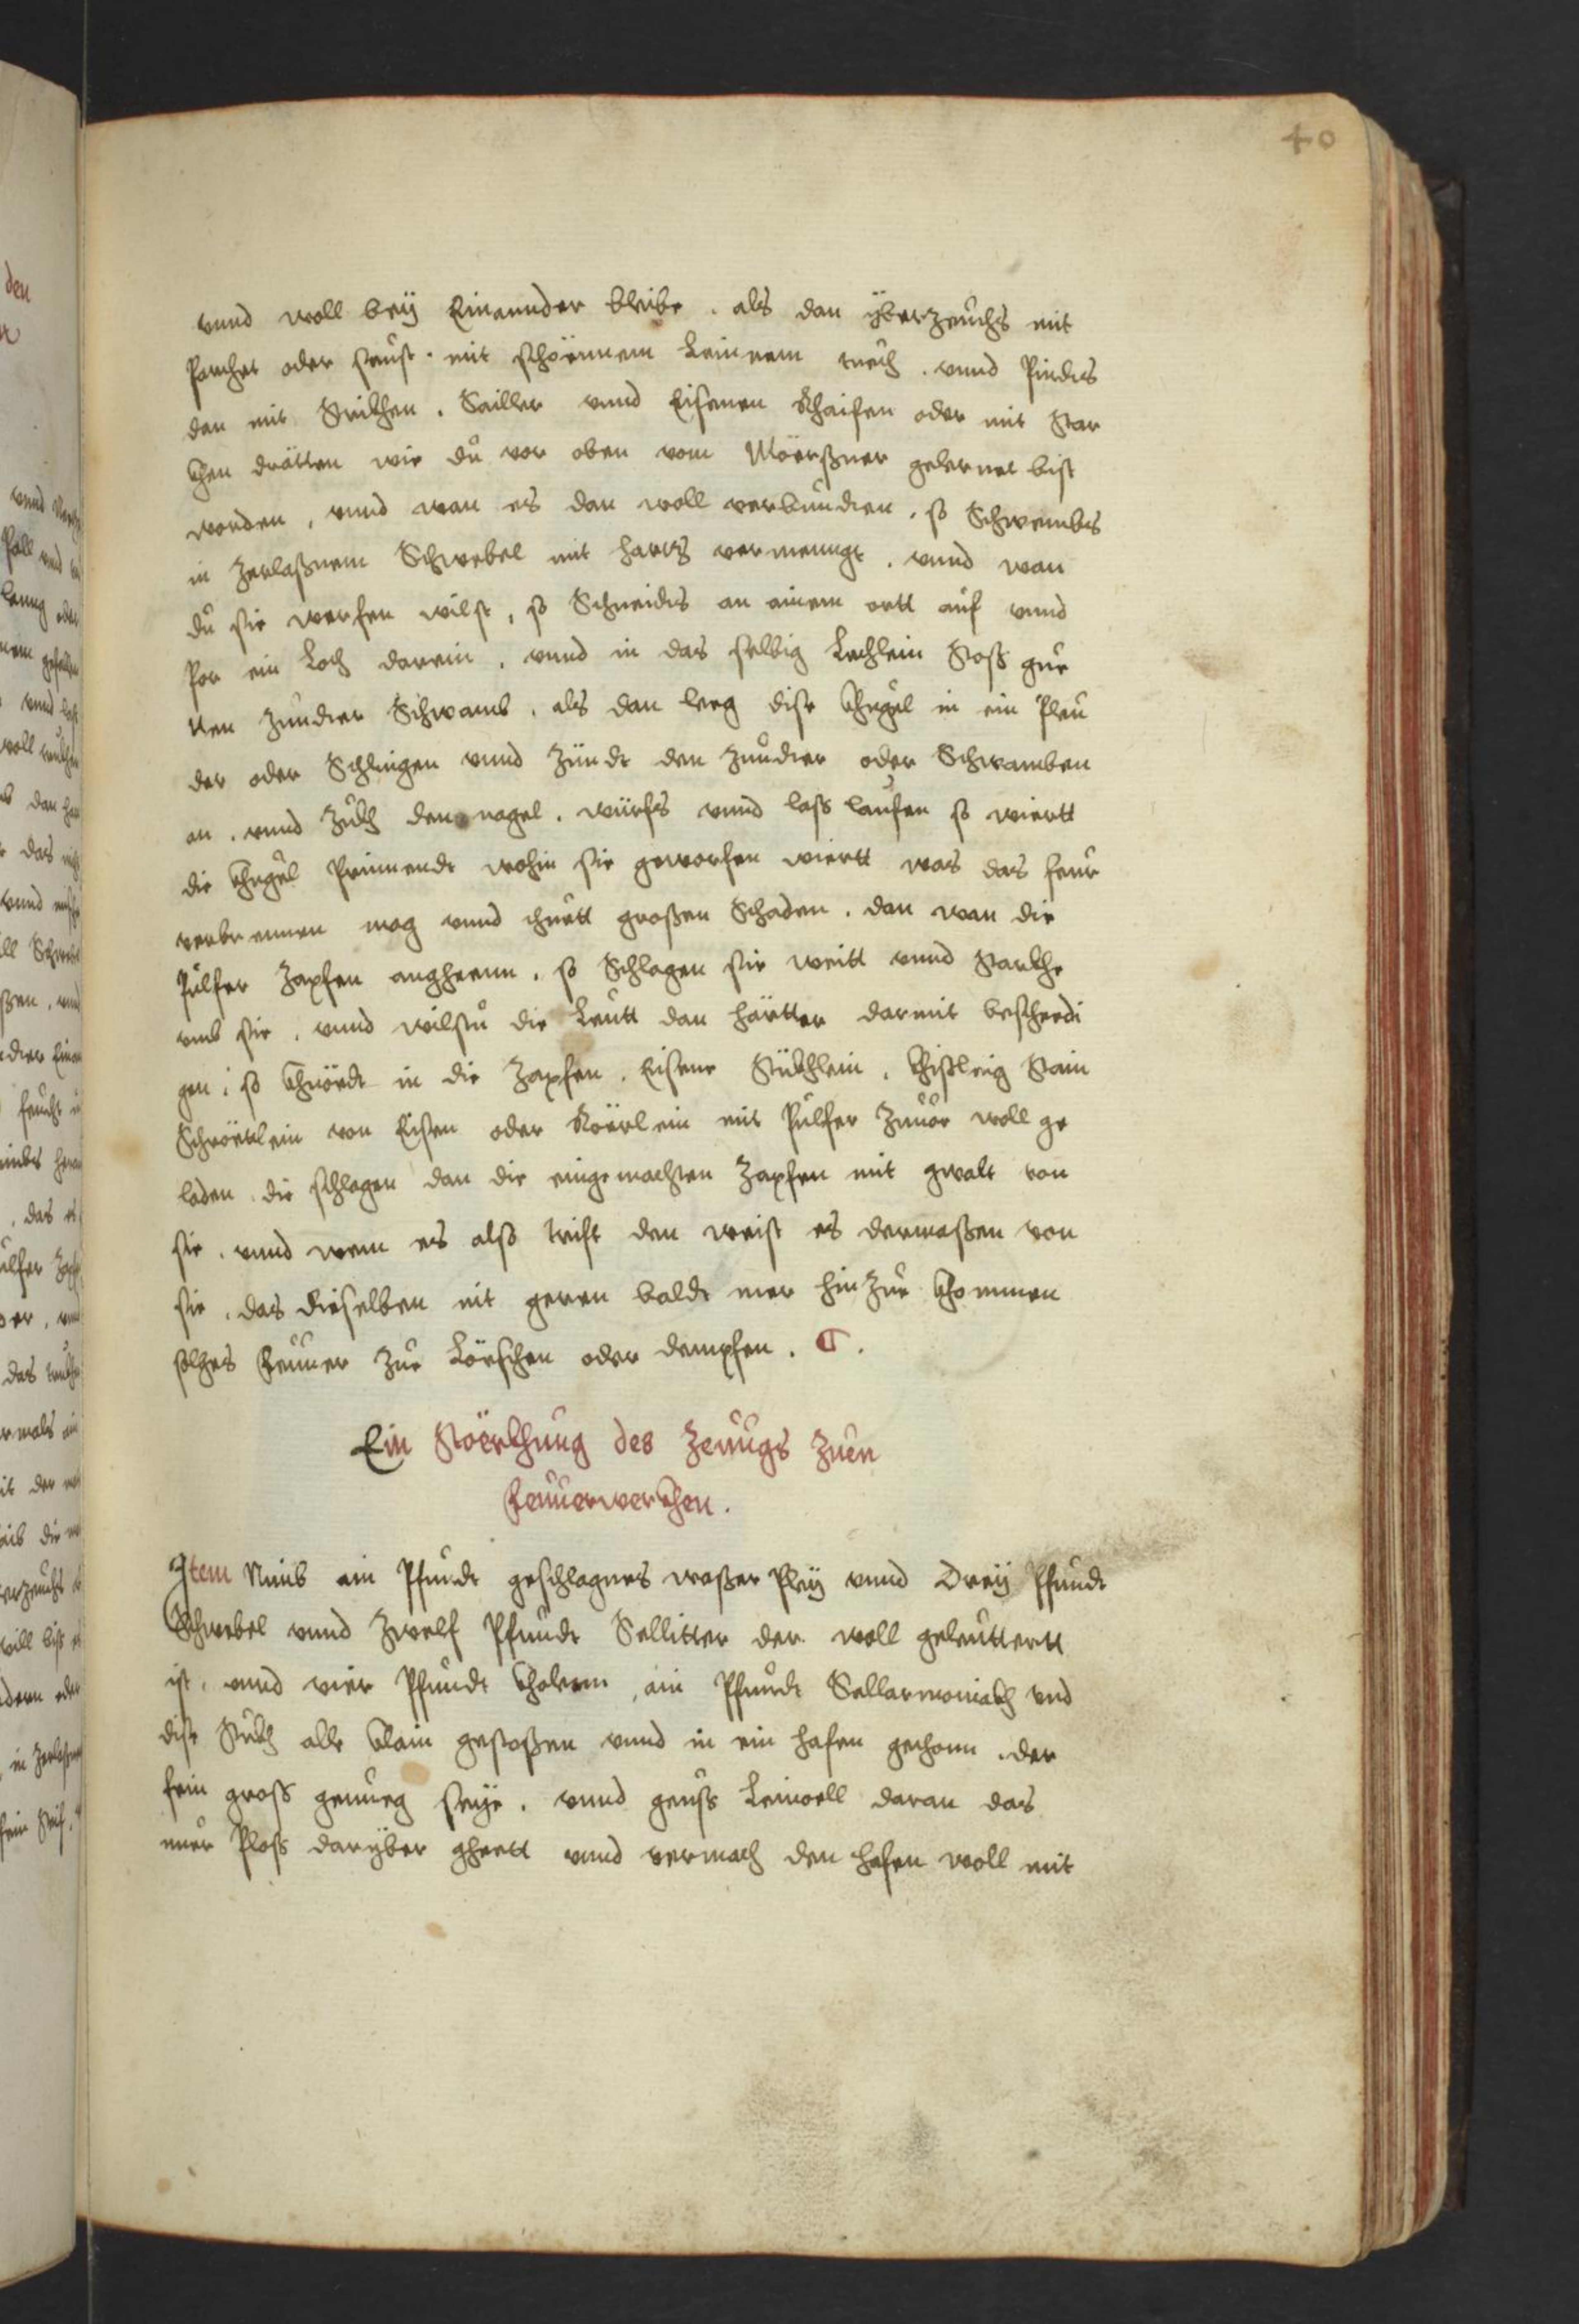 40
vnnd woll beÿ Einannder bleibe . als dan ÿberzeuchs mit
Parchet oder sunst . mit schönnem Leinnem tuech . vnnd Pindts
dan mit Strikhen . Sailler vnnd Eisenen Rhaifen oder mit Star
khen drätten wie du vor oben vom Mörßner gelernet bist
worden , vnnd wan es dan woll verbundten . so Schwembs
in Zerlaßnem Schwebel mit hartz vermenngt . vnnd wan
du sie werfen wilst , so Schneidts an ainem ortt auf vnnd
Por ein Loch darein . vnnd in das selbig Lechlein Stoß gue
tten Zunder Schwamb . als dan leeg dise khugel in ein Pleu
der oder Schlingen vnnd Zündt den Zundter oder Schwamben
an . vnnd Zukh den nagel . würfs vnnd lass laufen so wiertt
die khugel Prinnendt wohin sie geworfen wiertt was das feur
verbrennen mag vnnd thuett großen Schaden . dan wan die
Pulfer Zapfen angheenn . so Schlagen sie weitt vnnd Starkhe
vmb sie . vnnd wilstu die Leutt dan härtter darmit beschedi
gen , so in die Zapfen . Eisene Stükhlein . khißling Stain
Schröttlein von Eisen oder Rörlein mit Pulfer Zuuor woll ge
laden . die schlagen dan die eingemachten Zapfen mit gwalt von
sie . vnnd wem es also trift den weist es dermaßen von
sie . das dieselben nit geren baldt mer hinZue khommen
solches Feuuer Zue Löschen oder dempfen .
Ein Störkhung des Zeuugs Zuen
Feuuerwerkhen .
Item Nimb ain Pfundt geschlagnes waßer Pleÿ vnnd Dreÿ Pfundt
Schwebel vnnd Zwelf Pfundt Sellitter der woll geleuttertt
ist . vnnd vier Pfundt kholenn , ain Pfundt Sallarmoniakh vnd
dise Stukh alle klain gestoßen vnnd in ein hafen gethonn . der
fein gross genueg seÿe . vnnd geuss Leinoell daran das
nuer Ploss darÿber gheett vnnd vermach den hafen woll mit